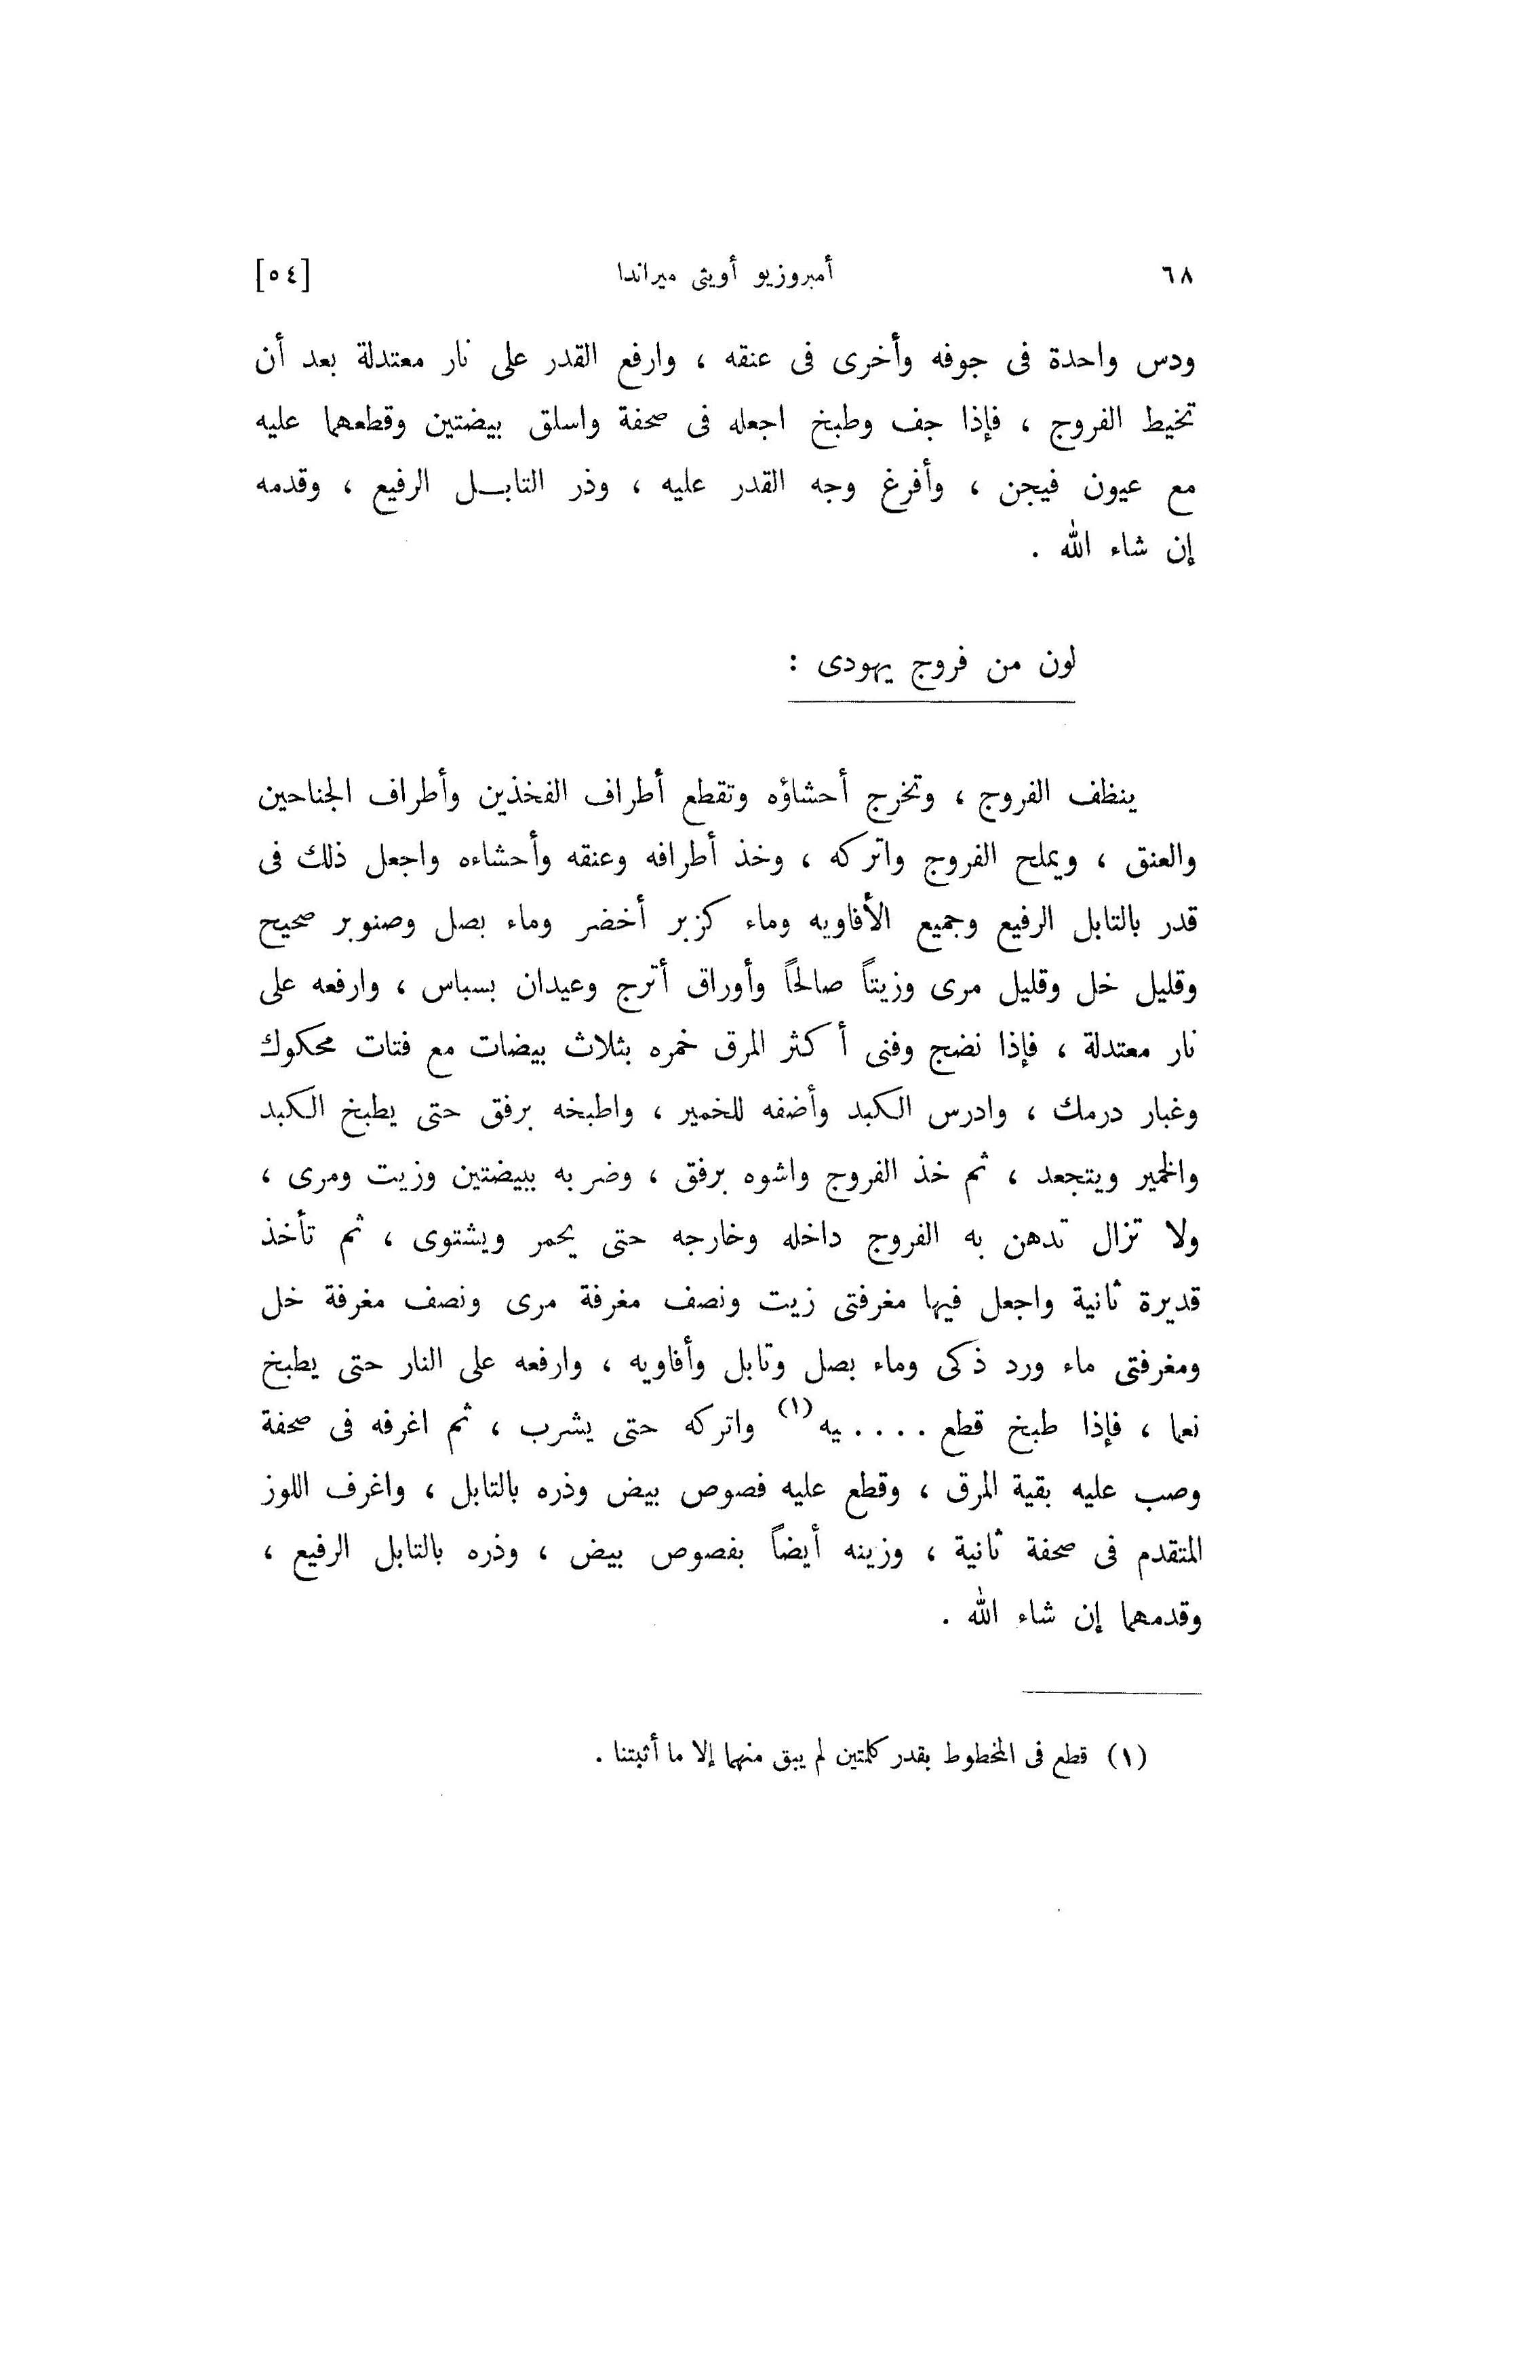 ٦٨ أمبروزيو أويثى ميراندا [٥٤]
ودس واحدة فى جوفه وأخرى فى عنقه ، وارفع القدر على نار معتدلة بعد أن
تخيط الفروج ، فإذا جف وطبخ اجعله فى صحفة واسلق بيضتين وقطعهما عليه
مع عيون فيجن ، وأفرغ وجه القدر عليه ، وذر التابل الرفيع ، وقدمه
إن شاء الله .
لون من فروج يهودى :
ينظف الفروج ، وتخرج أحشاؤه وتقطع أطراف الفخذين وأطراف الجناحين
والعنق ، ويملح الفروج واتركه ، وخذ أطرافه وعنقه وأحشاءه واجعل ذلك فى
قدر بالتابل الرفيع وجميع الأفاويه وماء كزبر أخضر وماء بصل وصنوبر صحيح
وقليل خل وقليل مرى وزيتاً صالحاً وأوراق أترج وعيدان بسباس ، وارفعه على
نار معتدلة ، فإذا نضج وفنى أكثر المرق خمره بثلاث بيضات مع فتات محكوك
وغبار درمك ، وادرس الكبد وأضفه للخمير ، واطبخه برفق حتى يطبخ الكبد
والخمير ويتجعد ، ثم خذ الفروج واشوه برفق ، وضربه ببيضتين وزيت ومرى ،
ولا تزال تدهن به الفروج داخله وخارجه حتى يحمر ويشتوى ، ثم تأخذ
قديرة ثانية واجعل فيها مغرفتى زيت ونصف مغرفة مرى ونصف مغرفة خل
ومغرفتى ماء ورد ذكى وماء بصل وتابل وأفاويه ، وارفعه على النار حتى يطبخ
نعما ، فإذا طبخ قطع . . . . يه (١) واتركه حتى يشرب ، ثم اغرفه فى صحفة
وصب عليه بقية المرق ، وقطع عليه فصوص بيض وذره بالتابل ، واغرف اللوز
المتقدم فى صحفة ثانية ، وزينه أيضاً بفصوص بيض ، وذره بالتابل الرفيع ،
وقدمهما إن شاء الله .
(١) قطع فى المخطوط بقدر كلمتين لم يبق منهما إلا ما أثبتنا .